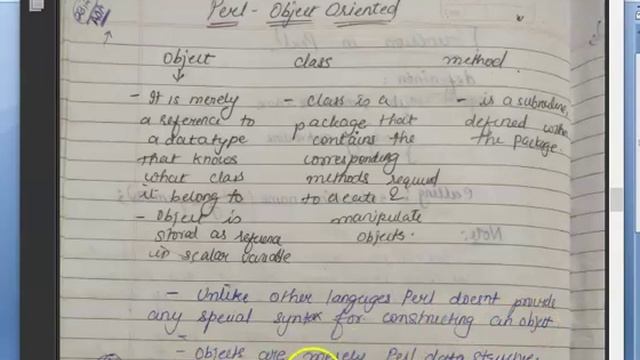 Perl - Object Oriented
Object class method
- It is merely
a reference to
a datatype
that knows
what class
it belong to
- Object is
stored as reference
in scalar variable
- class is a
package that
contains the
corresponding
methods required
to create &
manipulate
objects.
- is a subroutine
defined within
the package.
- Unlike other languges Perl doesnt provide
any special syntax for constructing an object
- Objects are merely Perl data structure